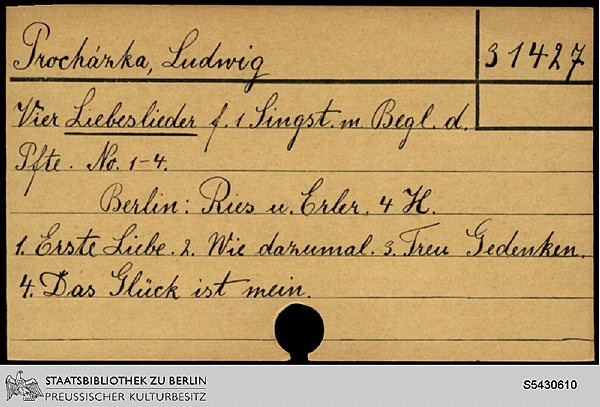 Procházka, Ludwig
31427
Vier Liebeslieder f. 1 Singst. m. Begl. d.
Pfte. No. 1-4.
Berlin: Ries u. Erler. 4 H.
1. Erste Liebe. 2. Wie dazumal. 3. Treu Gedenken.
4. Das Glück ist mein.
STAATSBIBLIOTHEK ZU BERLIN
PREUSSISCHER KULTURBESITZ
S5430610